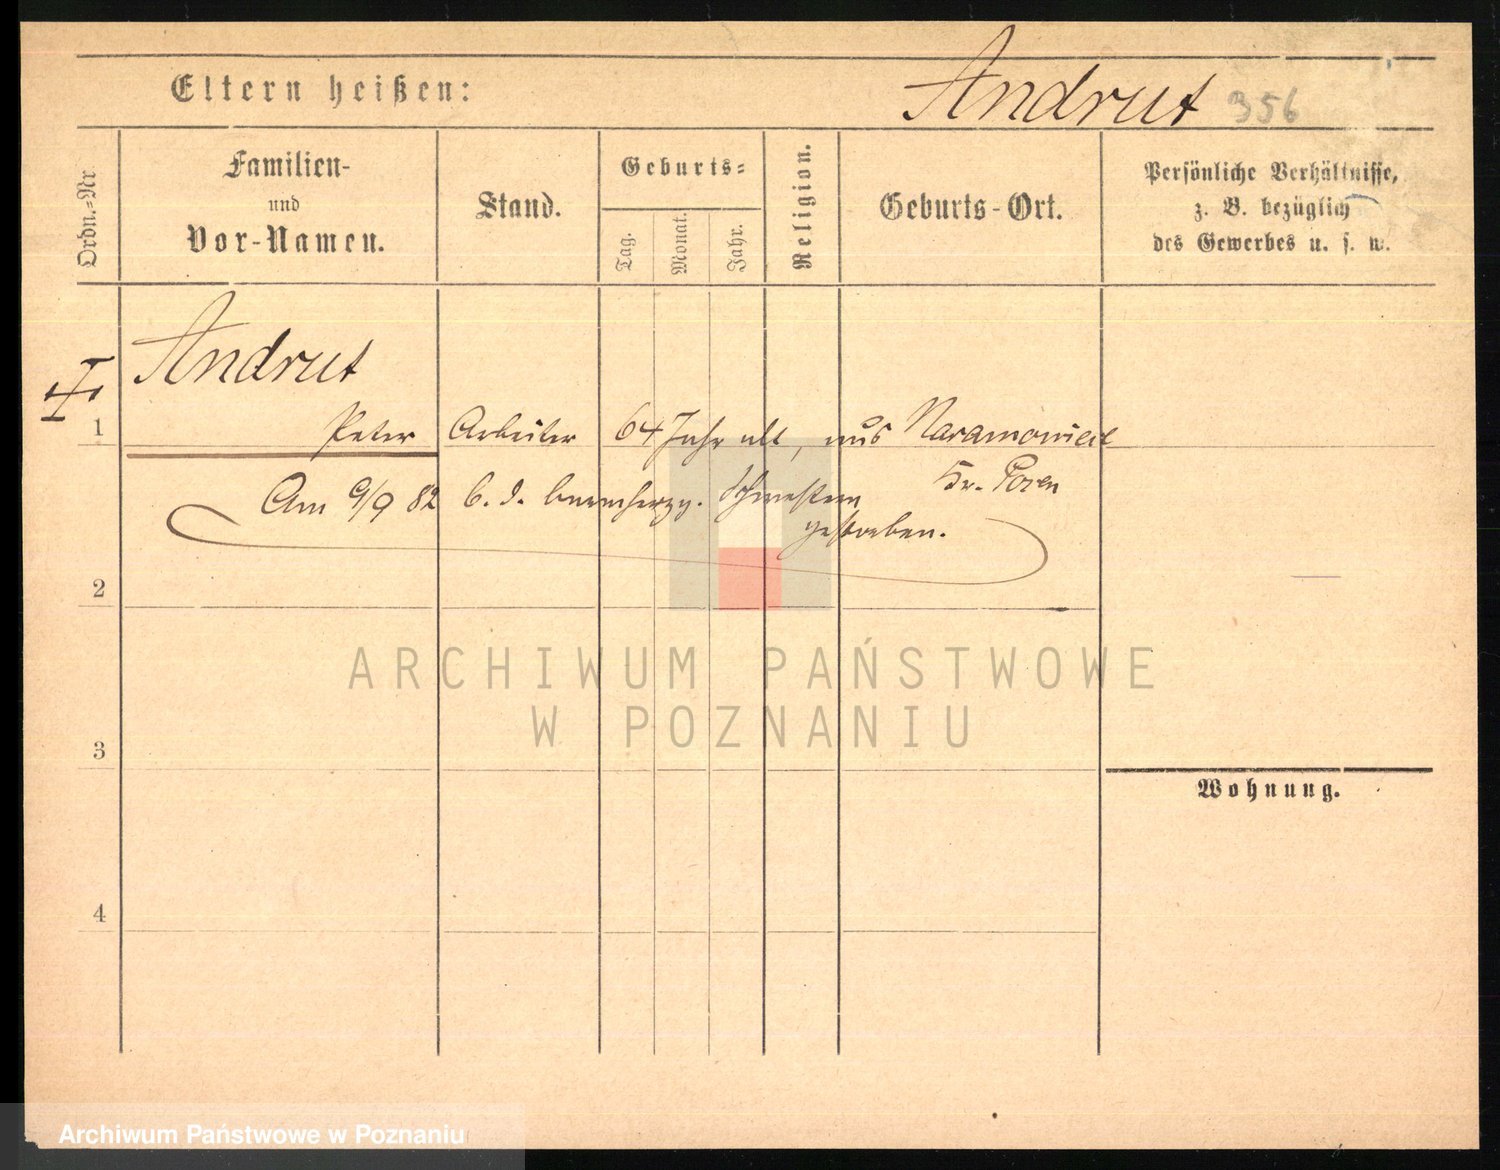 Eltern heißen:
Andrut 356
Ordn.-Nr
Familien-
und
Vor-Namen.
Stand.
Geburts-
Tag.
Monat.
Jahr.
Religion.
Geburts-Ort.
Persönliche Verhältnisse,
z. B. bezüglich
des Gewerbes u. s. w.
Andrut
1 Peter Arbeiter 64 Jahr alt, aus Naramowice
Kr. Posen
Am 9/9 82 b. d. barmherzg. Schwestern
gestorben.
2
3
4
Wohnung.
ARCHIWUM PAŃSTWOWE
W POZNANIU
Archiwum Państwowe w Poznaniu